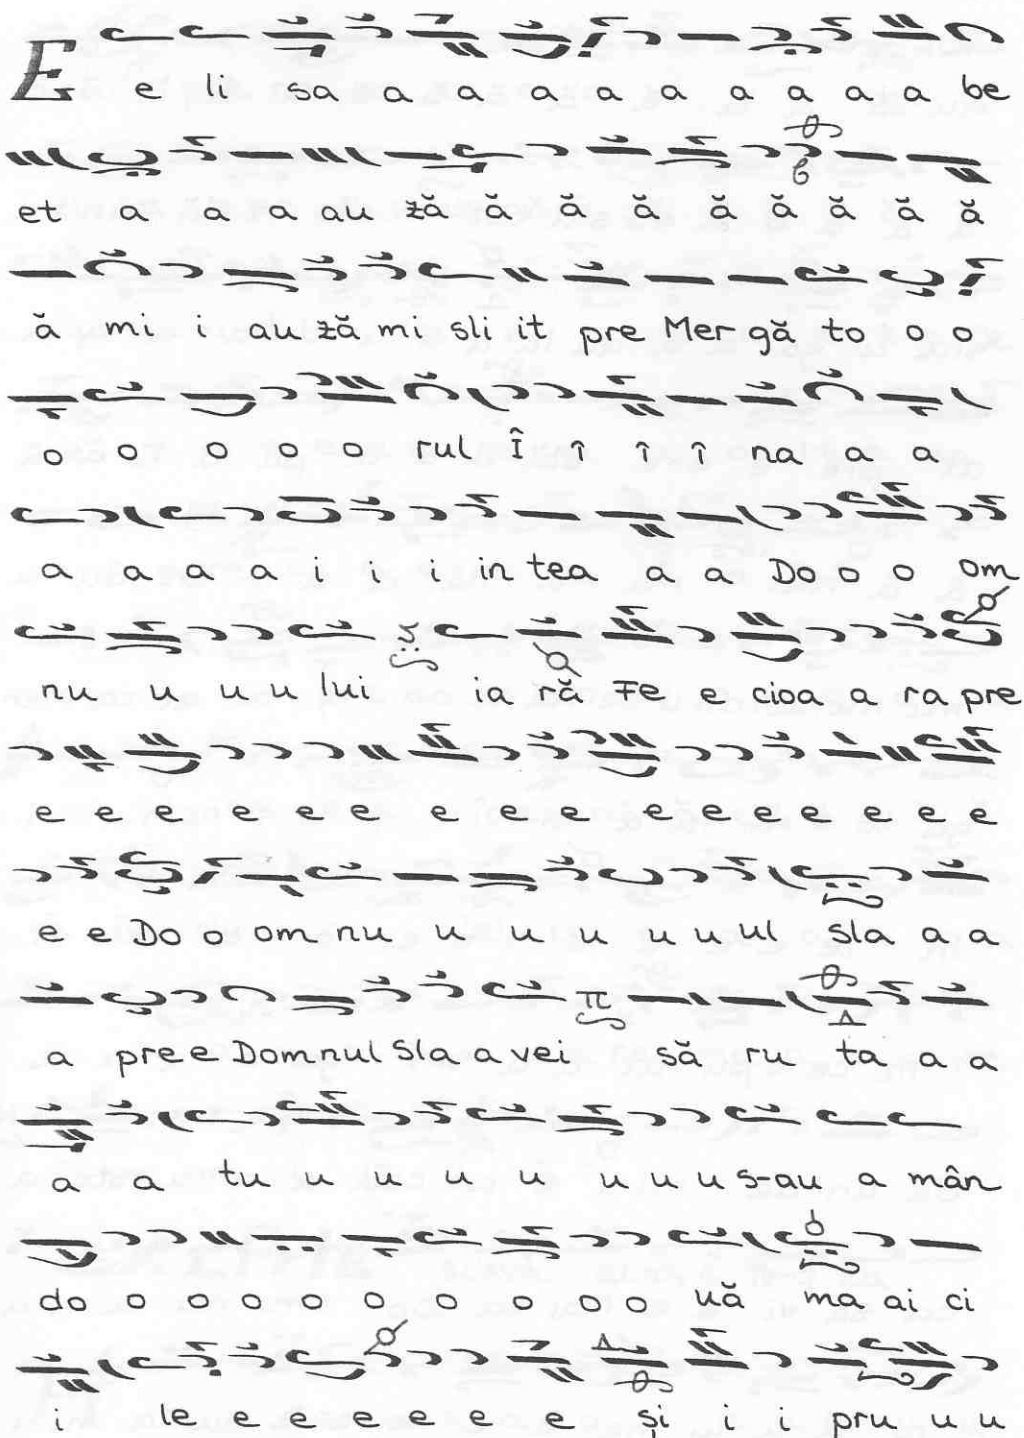 E e li sa a a a a a a a a a be
et a a a au ză ă ă ă ă ă ă ă ă
ă mi i au ză mi sli it pre Mer gă to o o
o o o o o rul Î î î î na a a
a a a a i i i in tea a a Do o o om
nu u u u lui ia ră Fe e cioa a ra pre
e e e e e e e e e e e e e e e
e e Do o om nu u u u u u ul Sla a a
a pre e Domnul Sla a vei să ru ta a a
a a tu u u u u u u u s-au a mân
do o o o o o o o o o uă ma ai ci
i le e e e e e e și i i pru u u